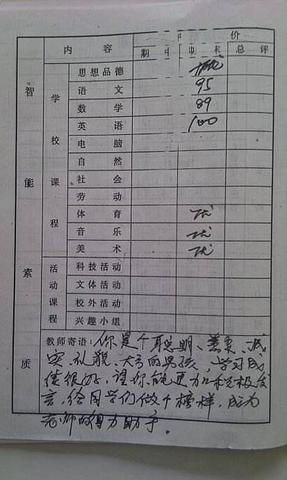 内 容 价
期 末 总 评
思想品德 优
语 文 95
数 学 89
英 语 100
电 脑
自 然
社 会
劳 动
体 育 优
音 乐 优
美 术 优
科技活动
文体活动
校外活动
兴趣小组
智 能 素 质
学 校 课 程
活 动 课 程
教师寄语: 你是个聪明、善良、诚
实、礼貌、大方的男孩,学习成
绩很好,望你能更加积极发
言,给同学们做个榜样,成为
老师的得力助手。